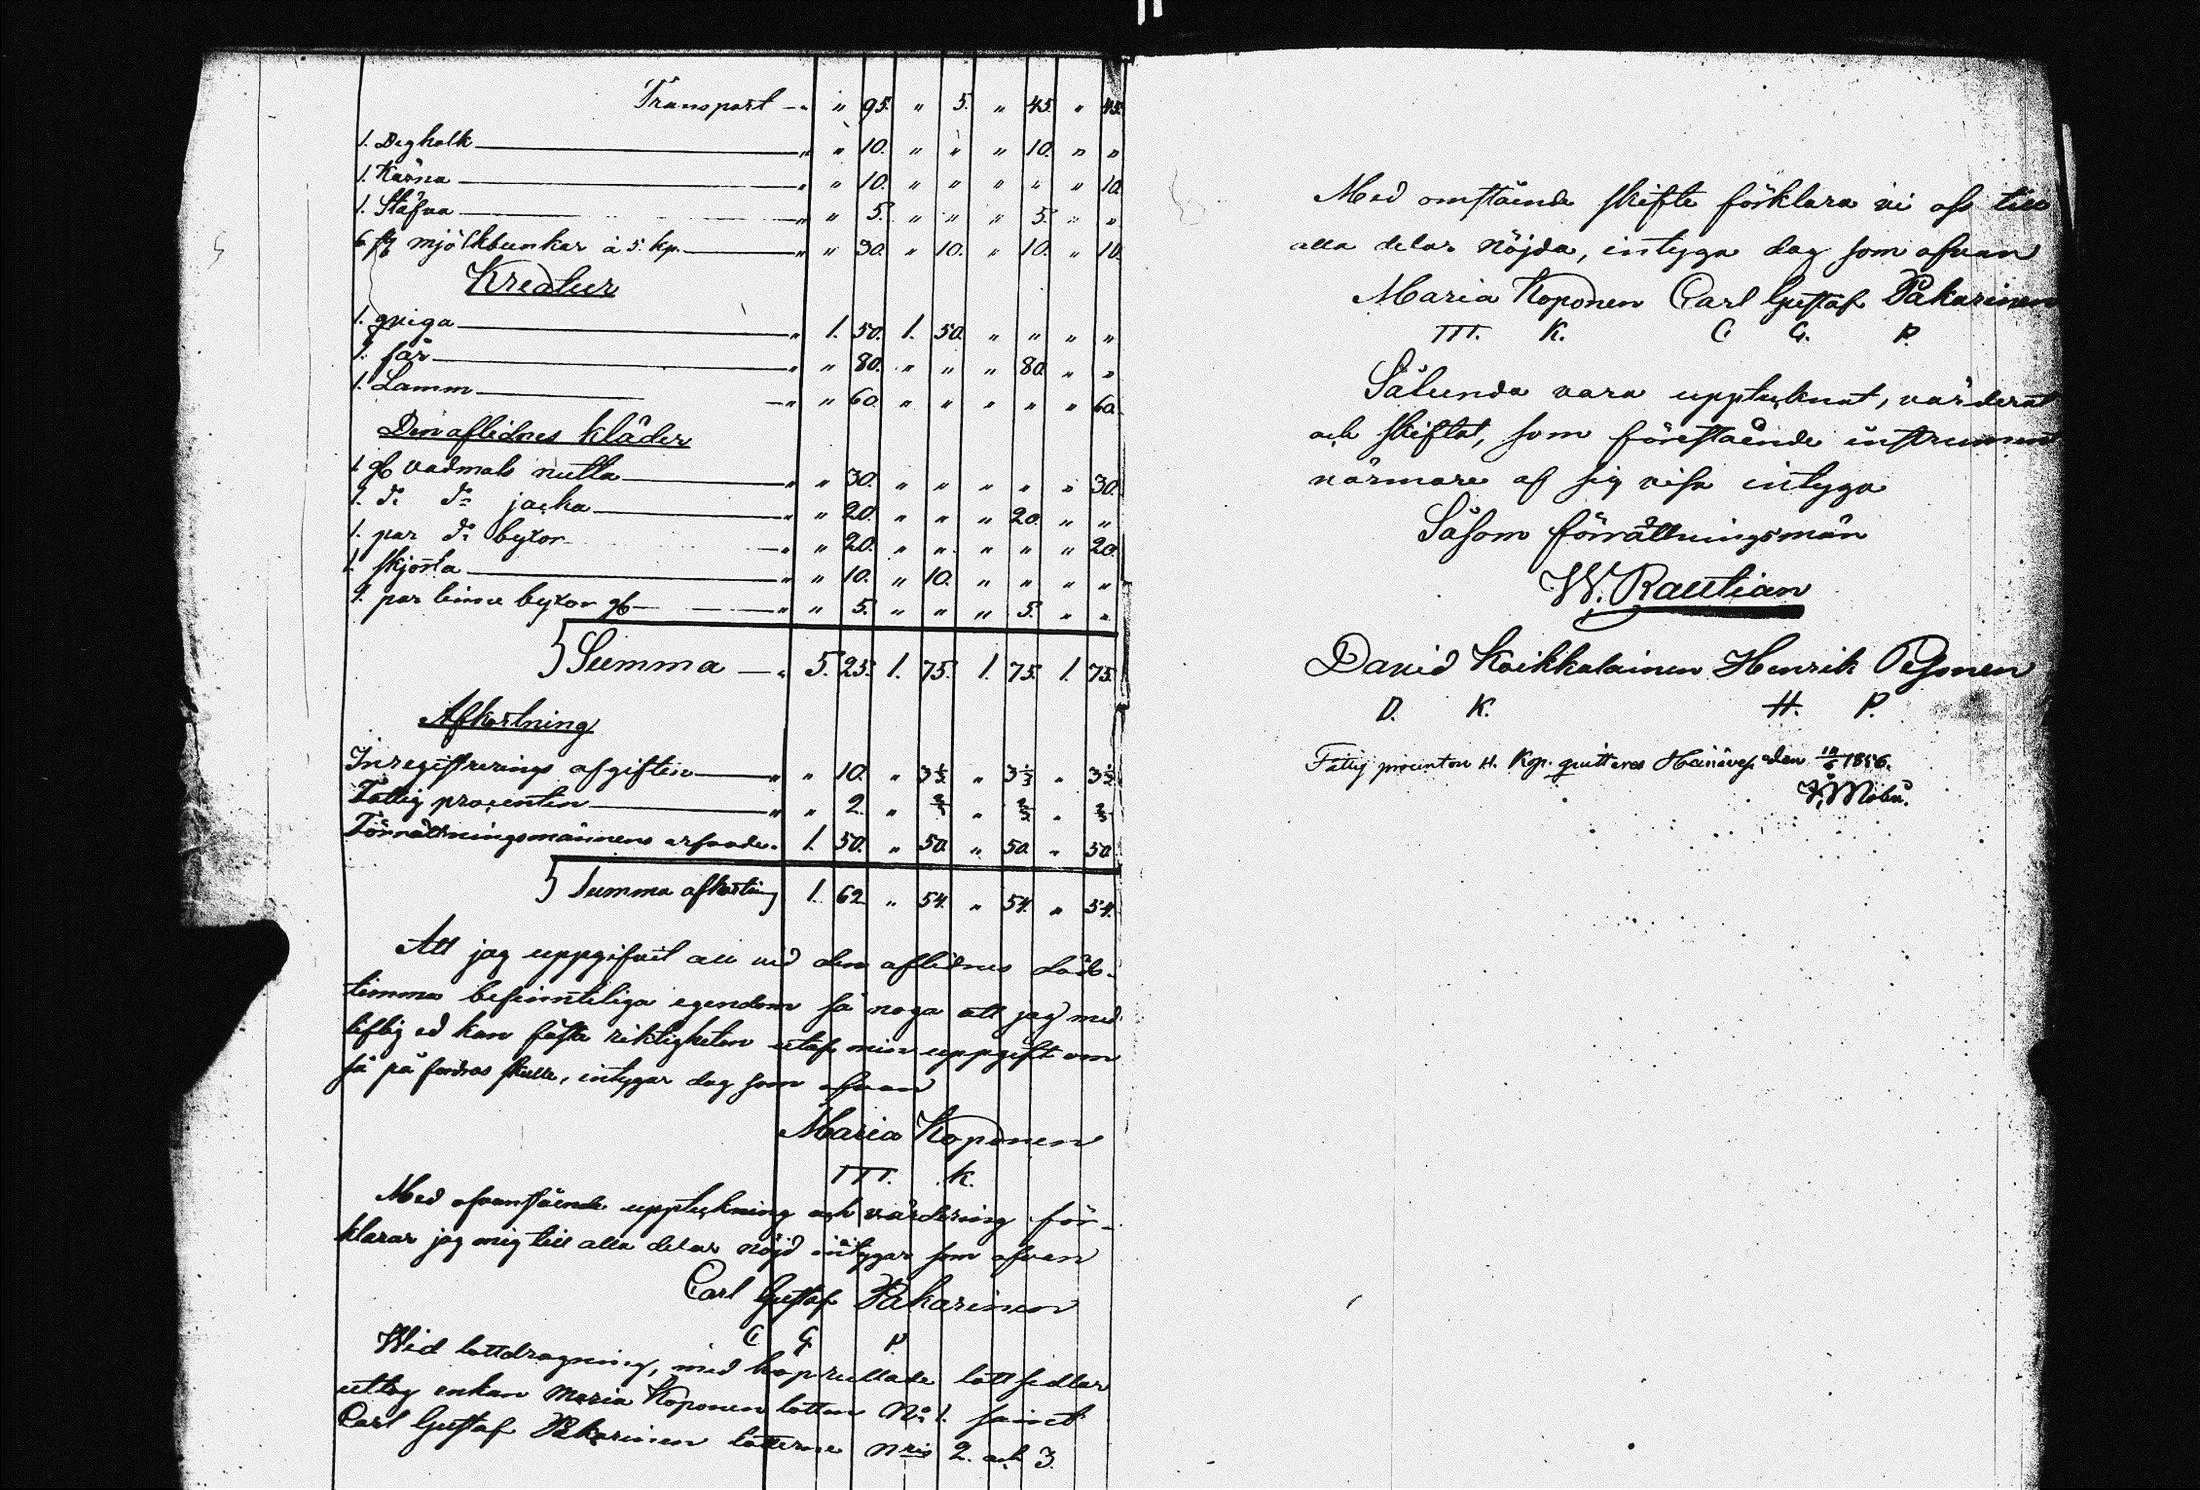 Transport — " " 95. " 5. " 45. " 45.
1. Degholk " " 10. " " " 10. " "
1. Kärna " " 10. " " " " " 10.
1. Stäfva " " 5. " " " 5. " "
6 st mjölkbunkar à 5. kp. " " 30. " 10. " 10. " 10.
Kreatur
1. qviga " 1. 50. 1. 50. " " " "
1. får " " 80. " " " 80. " "
1. Lamm " " 60. " " " " " 60.
Den aflidnes kläder
1. gl vadmals mutta " " 30. " " " " " 30.
1. do do jacka " " 20. " " " 20. " "
1. par do byxor " " 20. " " " " " 20.
1. skjorta " " 10. " 10. " " " "
1. par linne byxor gl " " 5. " " " 5. " "
Summa — " 5. 25. 1. 75. 1. 75. 1. 75.
Afkortning
Inregistrerings afgiften " " 10. " 3⅓ " 3⅓ " 3⅓
Fattig procenten " " 2. " ⅔ " ⅔ " ⅔
Förrättningsmännens arfvode. 1. 50. " 50. " 50. " 50
Summa afkortning 1. 62 " 54. " 54. " 54.
Att jag uppgifvit all vid den aflidnes döds-
timma befinnteliga egendom så noga att jag med
liflig ed kan fästa riktigheten utaf min uppgift om
så på fordras skulle, intygar dag som ofvan
Maria Koponen
M. K.
Med ofvanstående uppteckning och värdering för-
klarar jag mig till alla delar nöjd intygar som ofvan
Carl Gustaf Pakarinen
C G P.
Wid lottdragning, med hoprullade lottsedlar
uttog enkan Maria Koponen lotten No 1. samt
Carl Gustaf Pakarinen lotterne Nris 2. och 3.
Med omstående skifte förklara vi oss till
alla delar nöjda, intyga dag som ofvan
Maria Koponen Carl Gustaf Pakarinen
M. K. C. G. P.
Sålunda vara upptecknat, värderat
och skiftat, som förestående instrument
närmare af sig visa intyga
Såsom förrättningsmän
W. Rautian
David Koikkalainen Henrik Pesonen
D. K. H. P.
Fattig procenten kop. quitteras Heinäves. den 1856.